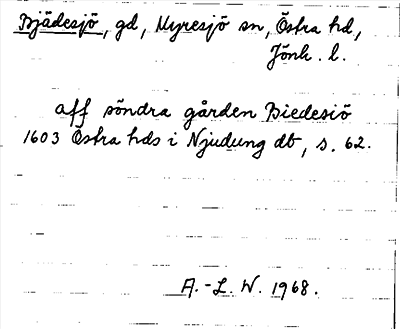 Bjädesjö, gd, Myresjö sn, Östra hd,
Jönk. l.
aff söndra gården Biedesiö
1603 Östra hds i Njudung db, s. 62.
A.-L. W. 1968.